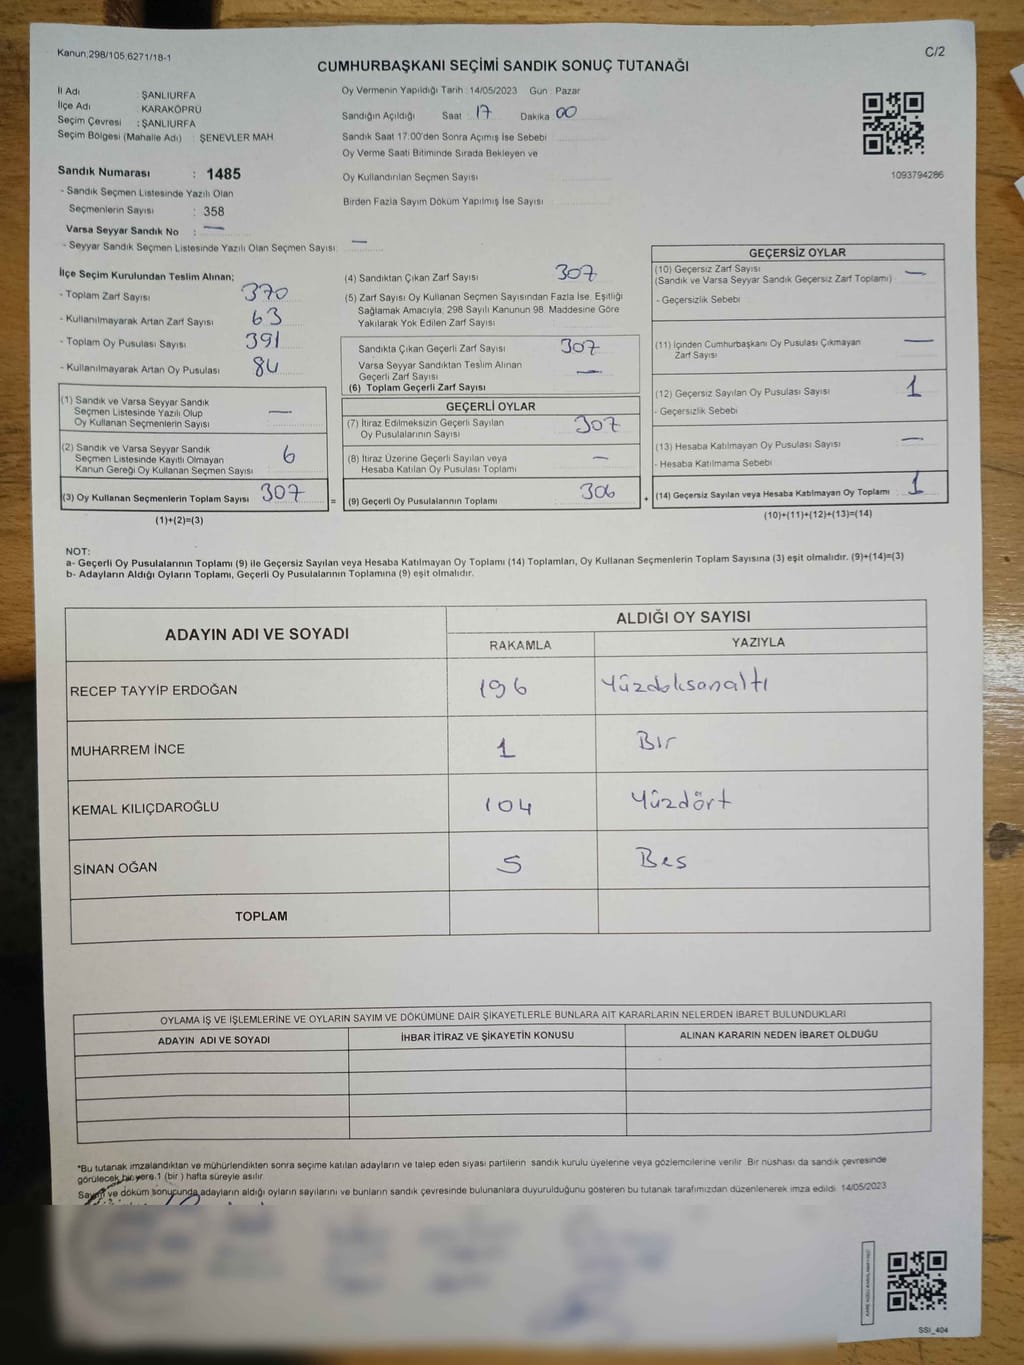 Kanun;298/105;6271/18-1
C/2
CUMHURBAŞKANI SEÇİMİ SANDIK SONUÇ TUTANAĞI
İl Adı : ŞANLIURFA
İlçe Adı : KARAKÖPRÜ
Seçim Çevresi : ŞANLIURFA
Seçim Bölgesi (Mahalle Adı) : ŞENEVLER MAH
Sandık Numarası : 1485
- Sandık Seçmen Listesinde Yazılı Olan
Seçmenlerin Sayısı : 358
Varsa Seyyar Sandık No : —
- Seyyar Sandık Seçmen Listesinde Yazılı Olan Seçmen Sayısı: —
Oy Vermenin Yapıldığı Tarih : 14/05/2023 Gün : Pazar
Sandığın Açıldığı Saat : 17 Dakika 00
Sandık Saat 17:00'den Sonra Açımış İse Sebebi
Oy Verme Saati Bitiminde Sırada Bekleyen ve
Oy Kullandırılan Seçmen Sayısı
Birden Fazla Sayım Döküm Yapılmış İse Sayısı
1093794286
İlçe Seçim Kurulundan Teslim Alınan;
- Toplam Zarf Sayısı 370
- Kullanılmayarak Artan Zarf Sayısı 63
- Toplam Oy Pusulası Sayısı 391
- Kullanılmayarak Artan Oy Pusulası 84
(1) Sandık ve Varsa Seyyar Sandık
Seçmen Listesinde Yazılı Olup
Oy Kullanan Seçmenlerin Sayısı —
(2) Sandık ve Varsa Seyyar Sandık
Seçmen Listesinde Kayıtlı Olmayan
Kanun Gereği Oy Kullanan Seçmen Sayısı 6
(3) Oy Kullanan Seçmenlerin Toplam Sayısı 307
(1)+(2)=(3)
=
(4) Sandıktan Çıkan Zarf Sayısı 307
(5) Zarf Sayısı Oy Kullanan Seçmen Sayısından Fazla İse, Eşitliği
Sağlamak Amacıyla; 298 Sayılı Kanunun 98. Maddesine Göre
Yakılarak Yok Edilen Zarf Sayısı
Sandıkta Çıkan Geçerli Zarf Sayısı 307
Varsa Seyyar Sandıktan Teslim Alınan
Geçerli Zarf Sayısı —
(6) Toplam Geçerli Zarf Sayısı
GEÇERLİ OYLAR
(7) İtiraz Edilmeksizin Geçerli Sayılan
Oy Pusulalarının Sayısı 307
(8) İtiraz Üzerine Geçerli Sayılan veya
Hesaba Katılan Oy Pusulası Toplamı —
(9) Geçerli Oy Pusulalarının Toplamı 306
+
GEÇERSİZ OYLAR
(10) Geçersiz Zarf Sayısı
(Sandık ve Varsa Seyyar Sandık Geçersiz Zarf Toplamı) —
- Geçersizlik Sebebi
(11) İçinden Cumhurbaşkanı Oy Pusulası Çıkmayan
Zarf Sayısı —
(12) Geçersiz Sayılan Oy Pusulası Sayısı 1
- Geçersizlik Sebebi
(13) Hesaba Katılmayan Oy Pusulası Sayısı —
- Hesaba Katılmama Sebebi
(14) Geçersiz Sayılan veya Hesaba Katılmayan Oy Toplamı : 1
(10)+(11)+(12)+(13)=(14)
NOT:
a- Geçerli Oy Pusulalarının Toplamı (9) ile Geçersiz Sayılan veya Hesaba Katılmayan Oy Toplamı (14) Toplamları, Oy Kullanan Seçmenlerin Toplam Sayısına (3) eşit olmalıdır. (9)+(14)=(3)
b- Adayların Aldığı Oyların Toplamı, Geçerli Oy Pusulalarının Toplamına (9) eşit olmalıdır.
ADAYIN ADI VE SOYADI
ALDIĞI OY SAYISI
RAKAMLA YAZIYLA
RECEP TAYYİP ERDOĞAN 196 Yüzdoksanaltı
MUHARREM İNCE 1 Bir
KEMAL KILIÇDAROĞLU 104 Yüzdört
SİNAN OĞAN 5 Bes
TOPLAM
OYLAMA İŞ VE İŞLEMLERİNE VE OYLARIN SAYIM VE DÖKÜMÜNE DAİR ŞİKAYETLERLE BUNLARA AİT KARARLARIN NELERDEN İBARET BULUNDUKLARI
ADAYIN ADI VE SOYADI İHBAR İTİRAZ VE ŞİKAYETİN KONUSU ALINAN KARARIN NEDEN İBARET OLDUĞU
*Bu tutanak imzalandıktan ve mühürlendikten sonra seçime katılan adayların ve talep eden siyasi partilerin sandık kurulu üyelerine veya gözlemcilerine verilir. Bir nüshası da sandık çevresinde
görülecek bir yere 1 (bir) hafta süreyle asılır.
Sayım ve döküm sonucunda adayların aldığı oyların sayılarını ve bunların sandık çevresinde bulunanlara duyurulduğunu gösteren bu tutanak tarafımızdan düzenlenerek imza edildi. 14/05/2023
SSI_404